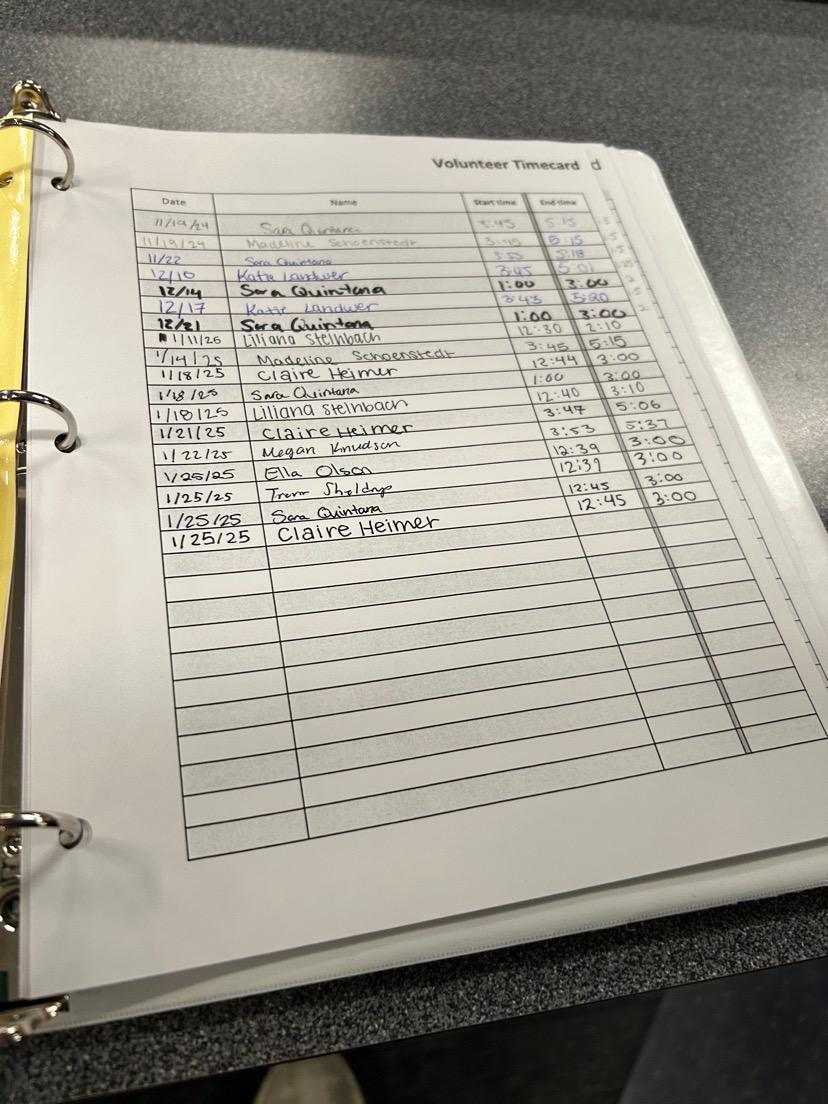 Volunteer Timecard d
Date Name Start time End time
11/19/24 Sara Quintana 3:45 5:15
11/19/24 Madeline Schoenstedt 3:45 5:15
11/22 Sara Quintana 3:53 5:18
12/10 Katie Landwer 3:45 5:01
12/14 Sara Quintana 1:00 3:00
12/17 Katie Landwer 3:43 5:20
12/21 Sara Quintana 1:00 3:00
1/11/25 Liliana Steinbach 12:30 2:10
1/14/25 Madeline Schoenstedt 3:45 5:15
1/18/25 Claire Heimer 12:44 3:00
1/18/25 Sara Quintana 1:00 3:00
1/18/25 Liliana Steinbach 12:40 3:10
1/21/25 Claire Heimer 3:47 5:06
1/22/25 Megan Knudson 3:53 5:37
1/25/25 Ella Olson 12:39 3:00
1/25/25 Trevor 12:39 3:00
1/25/25 Sara Quintana 12:45 3:00
1/25/25 Claire Heimer 12:45 3:00